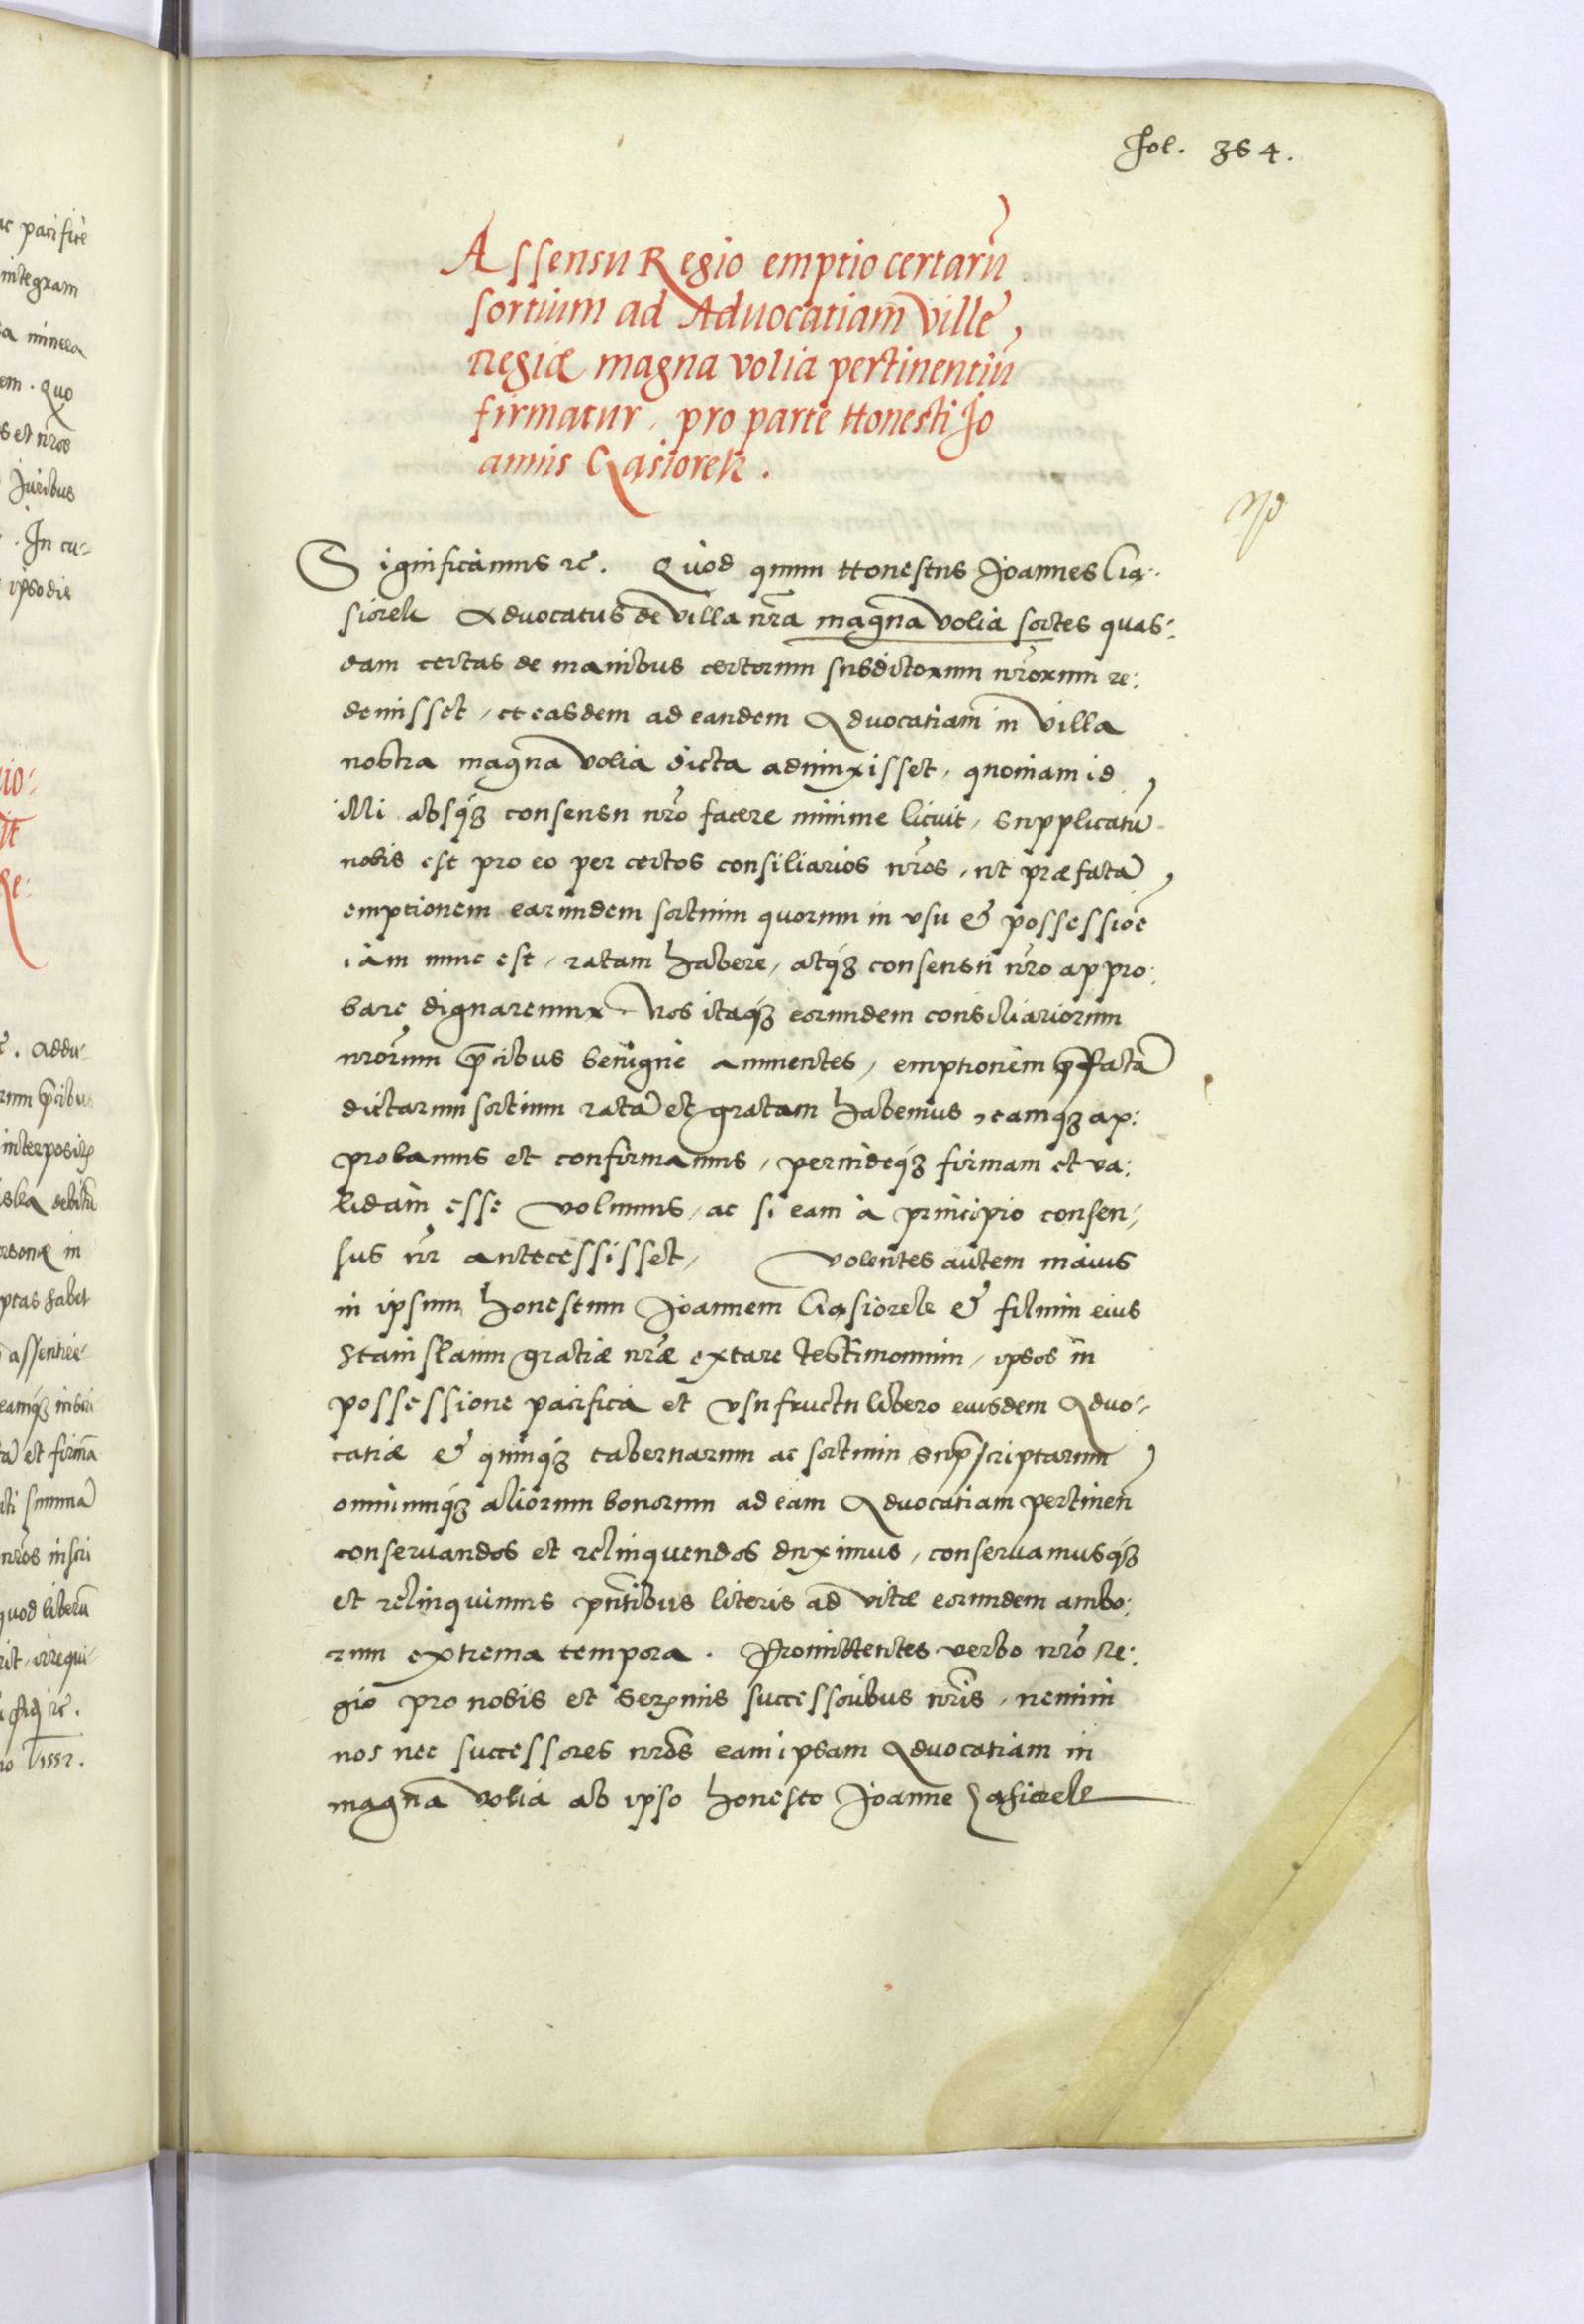 fol. 364.
Assensu Regio emptio certarū
sortium ad Advocatiam Ville
Regiæ magna volia pertinentiū
firmatur, pro parte Honesti Jo
annis Gąsiorek.
Significamus ꝛc̃. Quod quum Honestus Joannes Gą-
siorek Advocatus de Villa nr̃a magna volia sortes quas:
dam certas de manibus certorum subditorum nr̃orum re:
demisset, et easdem ad eandem Advocatiam in Villa
nostra magna volia dicta adiunxisset, quoniam id
illi absq꜏ consensu nr̃o facere minime licuit, supplicatū
nobis est pro eo per certos consiliarios nr̃os, ut præfatā
emptionem earundem sortium quorum in usu et possessiōe
iam nunc est, ratam habere, atq꜏ consensu nr̃o appro:
bare dignaremur. Nos itaq꜏ eorundem consiliariorum
nr̃orum p̃cibus benigne annuentes, emptionem p̃fatā
dictarum sortium ratā et gratam habemus, eamq꜏ ap:
probamus et confirmamus, perindeq꜏ firmam et va:
lidam esse volumus, ac si eam à principio consen-
sus nr̃ antecessisset, Volentes autem maius
in ipsum honestum Joannem Gąsiorek et filium eius
Stanislaum gratiæ nr̃æ extare testimonium, ipsos in
possessione pacifica et usufructu libero eiusdem Advo-
catiæ et quinq꜏ tabernarum ac sortium sup̃scriptarum
omniumq꜏ aliorum bonorum ad eam Advocatiam pertineñ
conservandos et relinquendos duximus, conservamusq꜏
et relinquimus pñtibus literis ad vitæ eorundem ambo:
rum extrema tempora. Promittentes verbo nr̃o Re:
gio pro nobis et Serẽnis successoribus nr̃is, nemini
nos nec successores nr̃os eam ipsam Advocatiam in
magna volia ab ipso honesto Joanne Gąsiorek